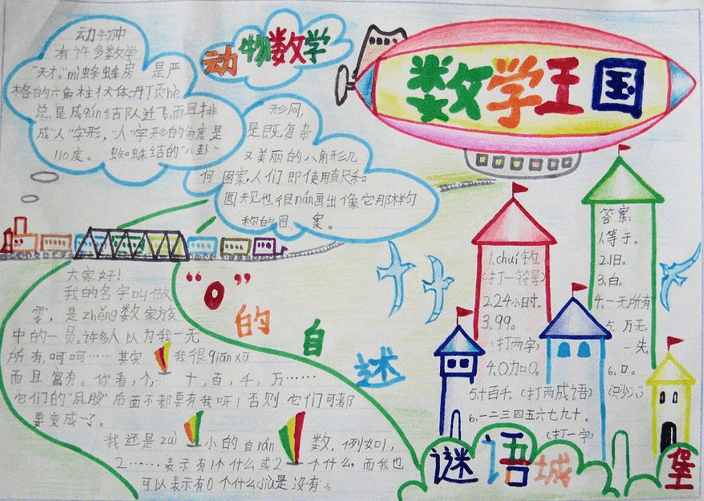 数学王国
动物数学
动物中
有许多数学
"天才"mì蜂蜂房 是严
格的六角柱状体丹顶hè
总是成qún结队迁飞,而且排
成"人"字形,"人"字形的角度是
110度。 蜘蛛结的"八卦"
形网,
是既复杂
又美丽的八角形几
何图案,人们即使用直尺和
圆规也很nán画出像它那样匀
称的图案。
"0"的自述
大家好!
我的名字叫做
零,是zhěng数家族
中的一员。许多人以为我一无
所有,呵呵……其实 我很qiān xū
而且富有。你看,个,一十,百,千,万……
它们的"屁股"后面不都要有我呀!否则它们可都
要变成一了。
我还是zuì小的自rán数,例如1,
2……表示有1个什么或2个什么,而我也
可以表示有0个什么jiù是没有。
1.chuí钓
(打一符号)
2.24小时。
3.99。
(打两字)
4.0加0。
5.十百千。(打两成语)
6.一二三四五六七九十。
(打一字)
答案:
1.等于。
2.旧。
3.白。
4.一无所有
5.万无
一失
6.口。
(只少八)
谜语城堡